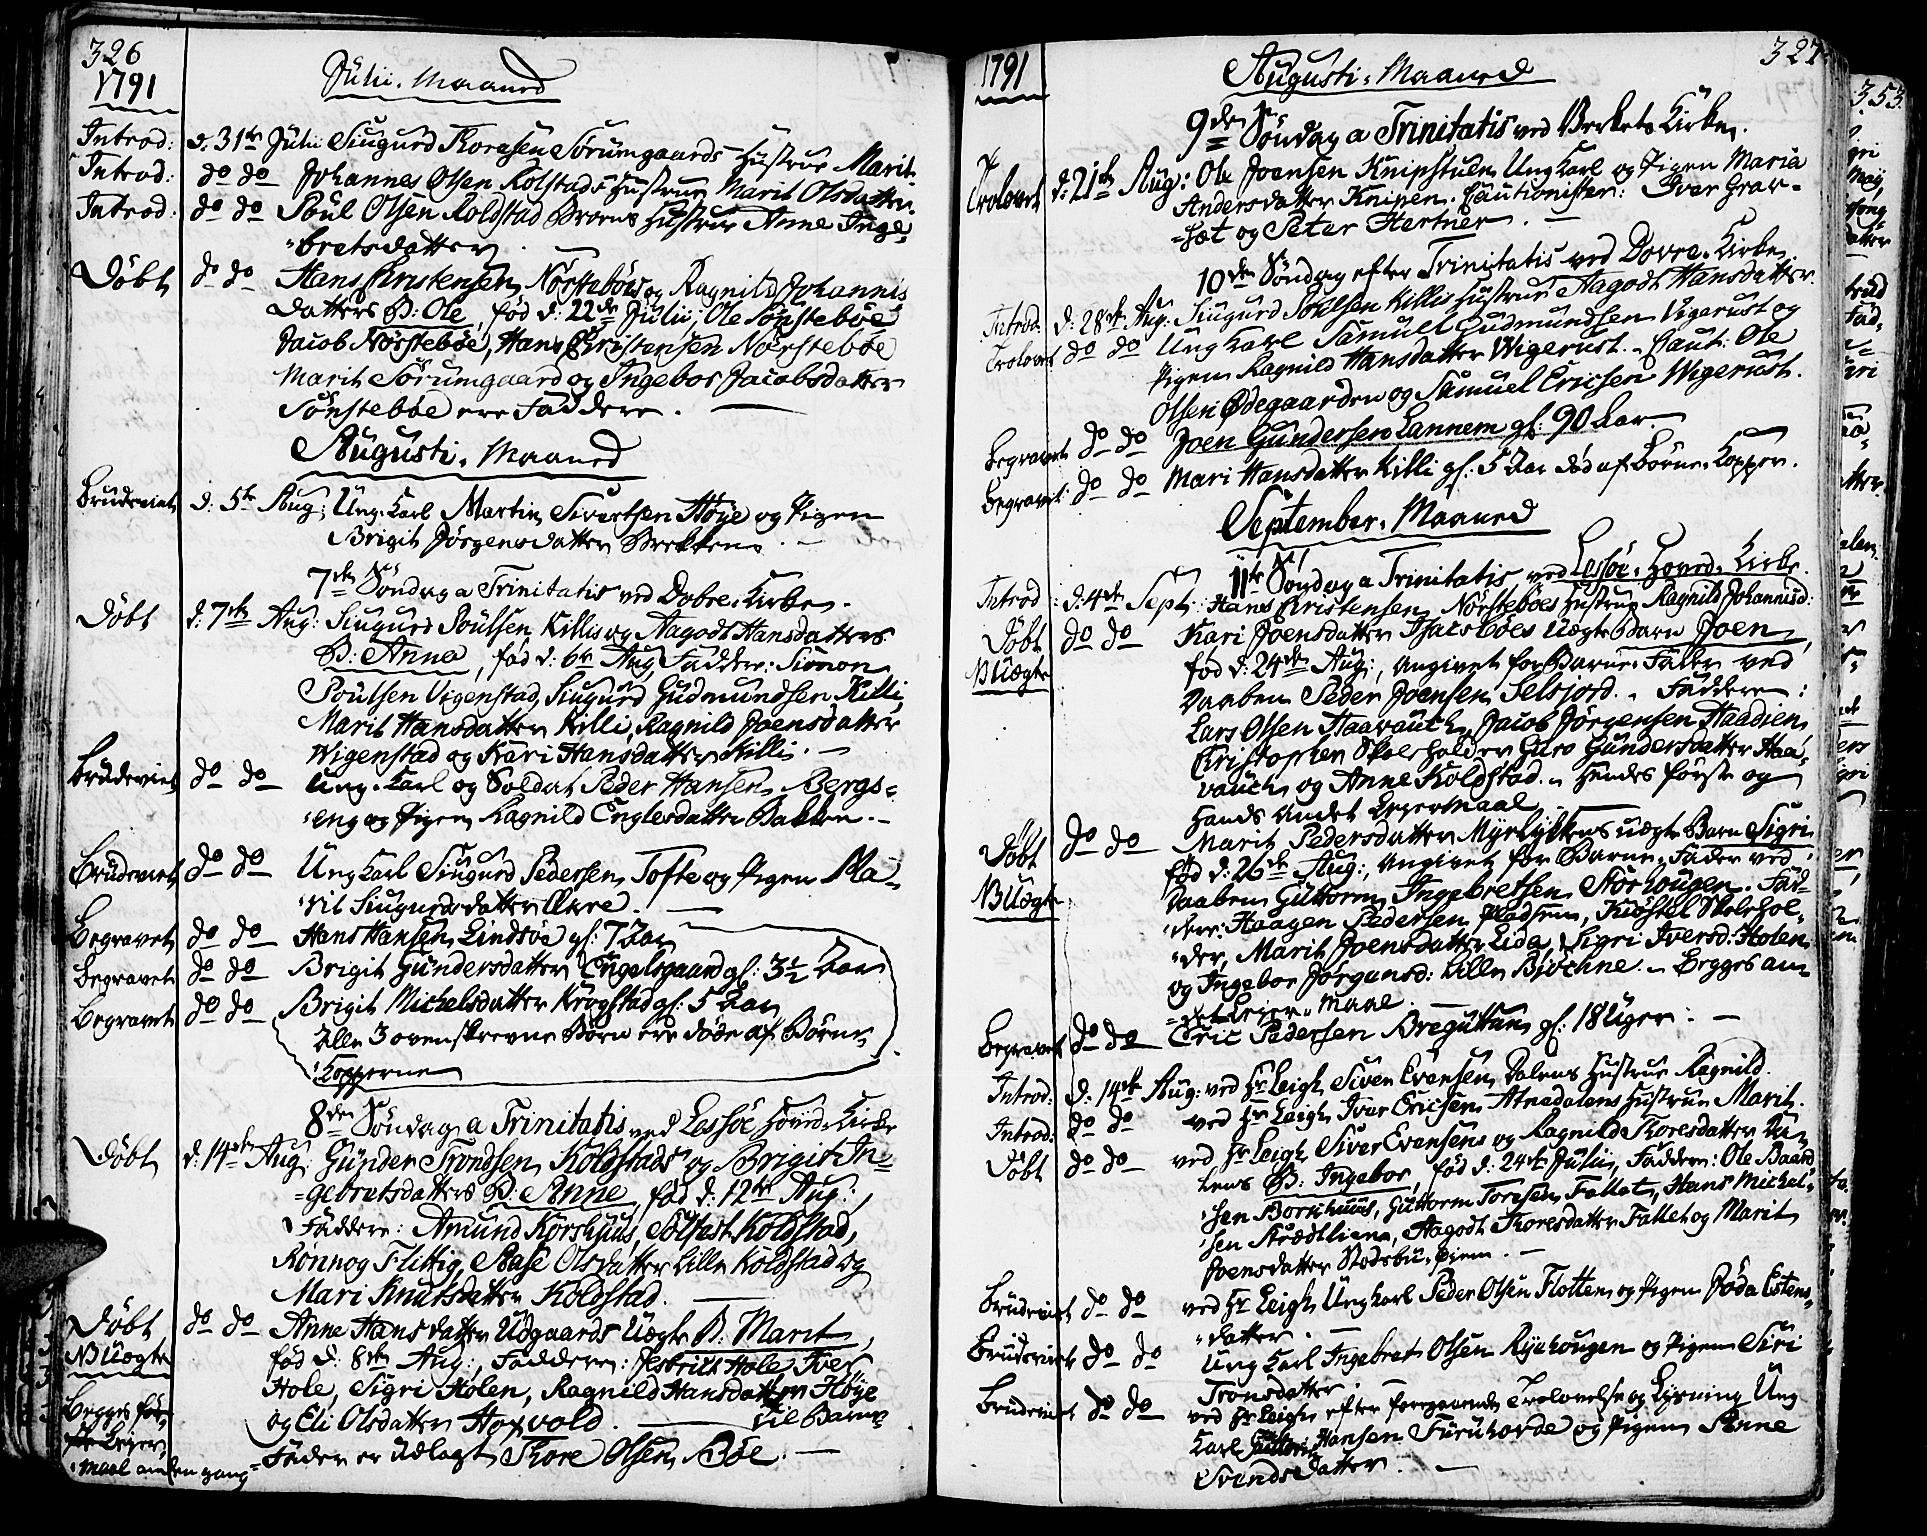 326
1791
Julii. Maaned
Introd: d: 31te Julii Siugurd Thoresen Sorumgaards Hustrue Marit
Introd: do do Johannes Olsen Kolstads Hustrue Marit Olsdatter
Introd: do do Poul Olsen Koldstad Hustrue Anne Inge-
bretsdatter.
Döbt do do Hans Christensen Nörsteböe og Ragnild Johannis
datters B: Ole, fød d: 22de Julii, Ole Sönsteböe
Jacob Nörsteböe, Hans Christensen Nörsteböe
Marit Sörumgaard og Ingebor Jacobsdatter
Sönsteböe ere Faddere.
Augusti. Maaned
Brudeviet d. 5te Aug: Ung. Karl Martin Sivertsen Høye og Pigen
Brigit Jörgensdatter Brekken.
7de Söndag a Trinitatis ved Dovre. Kirke.
Döbt d: 7de Aug: Siugurd Poulsen Killis og Aagodt Hansdatters
B: Anna, fød d: 6te Aug, Faddere: Simon
Poulsen Vigenstad, Siugurd Gudmundsen Killi,
Marit Hansdatter Killi, Ragnild Joensdatter
Wigenstad og Kari Hansdatter Killi.
Brudeviet do do Ung. Karl og Soldat Peder Hansen Bergs-
eng og Pigen Ragnild Englesdatter Bakken.
Brudeviet do do Ung Karl Siugurd Pedersen Tofte og Pigen Ma-
rit Siugurdsdatter
Begravet do do Hans Hansen Lindsøe gl: 7 Aar
Begravet do do Brigit Gundersdatter Engelsgaard gl: 3½ Aar
Begravet do do Brigit Michelsdatter Krogstad gl: 5 Aar
Alle 3 ovenskrevne Børn ere døde af Børne-
Kopperne
8de Söndag a Trinitatis ved Lessöe Hoved. Kirke
Döbt d: 14de Aug Gunder Trondsen Koldstads og Brigit In-
gebretsdatters B: Anne, fød d: 12te Aug:,
Faddere: Amund Korshuus, Solfest Koldstad,
Rönnog Flittig, Aase Olsdatter Lille Koldstad og
Mari Knutsdatter Koldstad.
Döbt do do Anne Hansdatter Udgaards Uægte B. Marit,
NB Uægte fød d: 8de Aug:, Faddere: Hole, Iver
Hole, Sigri Holen, Ragnild Hansdatter Høye
Begges før- og Eli Olsdatter Hoxvold. til Barne-
ste Leier- Fader er udlagt Thore Olsen Böe.
maal anden gang
327
353
1791
Augusti. Maaned
9de Söndag a Trinitatis ved Verkets Kirke.
Trolovet d: 21de Aug: Ole Joensen Knipstuen Ung Karl og Pigen Maria
Andersdatter Knipen. Cautionister: Iver Grav-
sæt og Peter Hertner.
10de Söndag efter Trinitatis ved Dovre. Kirke.
Introd: d: 28de Aug: Siugurd Poulsen Killis Hustrue Aagodt Hansdatter.
Trolovet do do Ung Karl Samuel Gudmundsen Vigerust og
Pigen Ragnild Hansdatter Wigerust. Caut: Ole
Olsen Ødegaarden og Samuel Ericsen Wigerust.
Begravet do do Joen Gundersen Lannem gl: 90 Aar
Begravet do do Mari Hansdatter Killi gl: 5 Aar død af Børne. Kopper.
September. Maaned
11te Söndag a Trinitatis, ved Lessöe. Hoved. Kirke.
Introd: d: 4de Sept: Hans Christensen Nörsteböes Hustrue Ragnild Johannisd:
Döbt do do Kari Joensdatter Uægte Barn Joen,
NB Uægte fød d: 24de Aug:, angivet for Barne. Fader ved
Daaben Peder Joensen Selsjord. Faddere:
Lars Olsen Haavauch, Jacob Jørgensen Haadien,
Christopher Skoleholder, Guro Gundersdatter Haa-
vauch og Anne Koldstad. Hendes første og
Hands Andet Leyermaal
Döbt do do Marit Pedersdatter Myrlykkens uægte Barn Sigri
NB Uægte fød d: 26de Aug:, angivet for Barne. Fader ved
Daaben Guttorm Ingebretsen Störhougen. Fad-
dere: Haagen Pedersen Pladsen, Kiöstel Skolehol-
der, Marit Joensdatter Lida, Sigri Iversd: Holen
og Ingebor Jørgensd: Lille Björhne. Begges an-
det Leyer. Maal.
Begravet do do Eric Pedersen Breguttun gl: 18 Uger.
Introd: d: 14de Aug: ved Hr Leigh Siver Evensen Dalens Hustrue Ragnild
Introd: do do ved Hr Leigh Iver Ericsen Atnedalens Hustrue Marit.
Döbt do do ved Hr Leigh Siver Evensens og Ragnild Thoresdatter Da-
lens B: Ingebor, fød d: 24de Julii, Faddere: Ole Baard
sen Borkhuus, Guttorm Toresen Fallet, Hans Michel-
sen Strædtliene, Aagodt Thoresdatter Fallet og Marit
Joensdatter
Brudeviet do do ved Hr Leigh Ung Karl Peder Olsen Flotten og Pigen Jøda Estens-
datter.
Brudeviet do do Ung Karl Ingebret Olsen Ryehougen og Pigen Siri
Tronsdatter.
Brudeviet do do ved Hr Leigh efter foregaaende Trolovelse og Lysning Ung
Karl Guttorm Hansen Furuhovde og Pigen Anne
Svendsdatter.